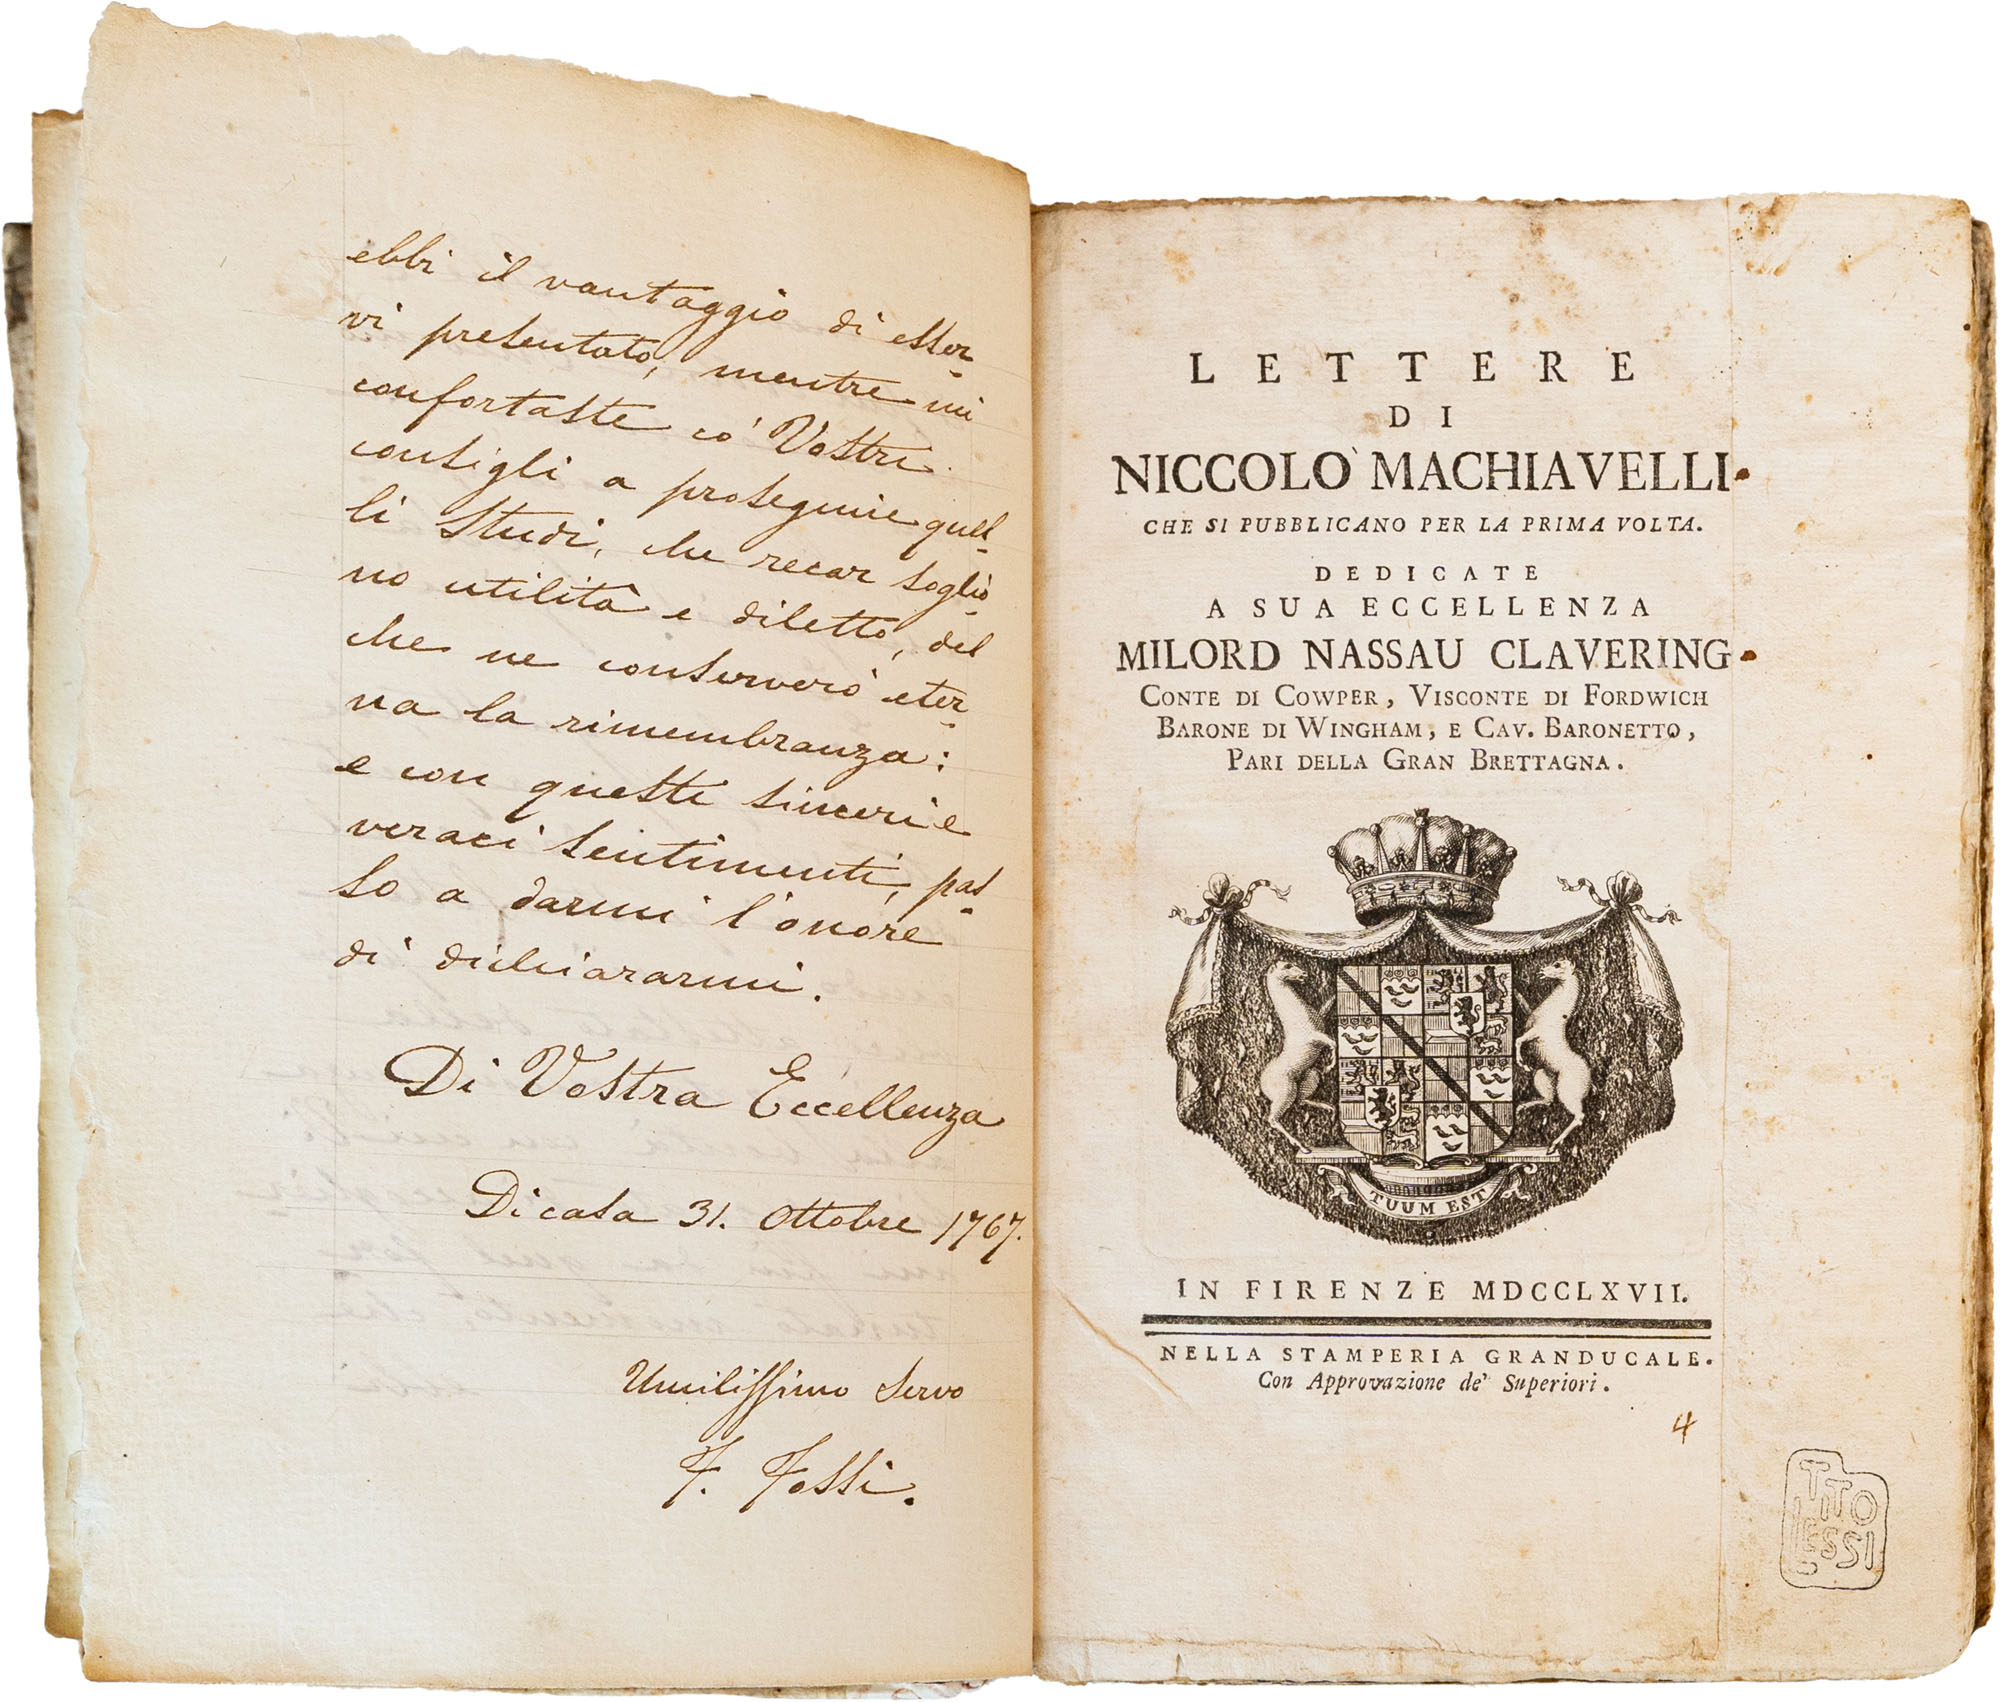 ebbi il vantaggio di esser-
vi presentato, mentre mi
confortaste co' Vostri
consigli a proseguire quel-
li Studi, che recar soglio-
no utilità e diletto, del
che ne conserverò eter-
na la rimembranza:
e con questi sinceri e
veraci sentimenti, pas-
so a darmi l'onore
di dichiararmi.
Di Vostra Eccellenza
Di casa 31. Ottobre 1767.
Umilissimo Servo
F. Fossi.
LETTERE
DI
NICCOLO' MACHIAVELLI
CHE SI PUBBLICANO PER LA PRIMA VOLTA.
DEDICATE
A SUA ECCELLENZA
MILORD NASSAU CLAVERING
CONTE DI COWPER, VISCONTE DI FORDWICH
BARONE DI WINGHAM, E CAV. BARONETTO,
PARI DELLA GRAN BRETTAGNA.
TUUM EST
IN FIRENZE MDCCLXVII.
NELLA STAMPERIA GRANDUCALE.
Con Approvazione de' Superiori.
4
TITO
LESSI